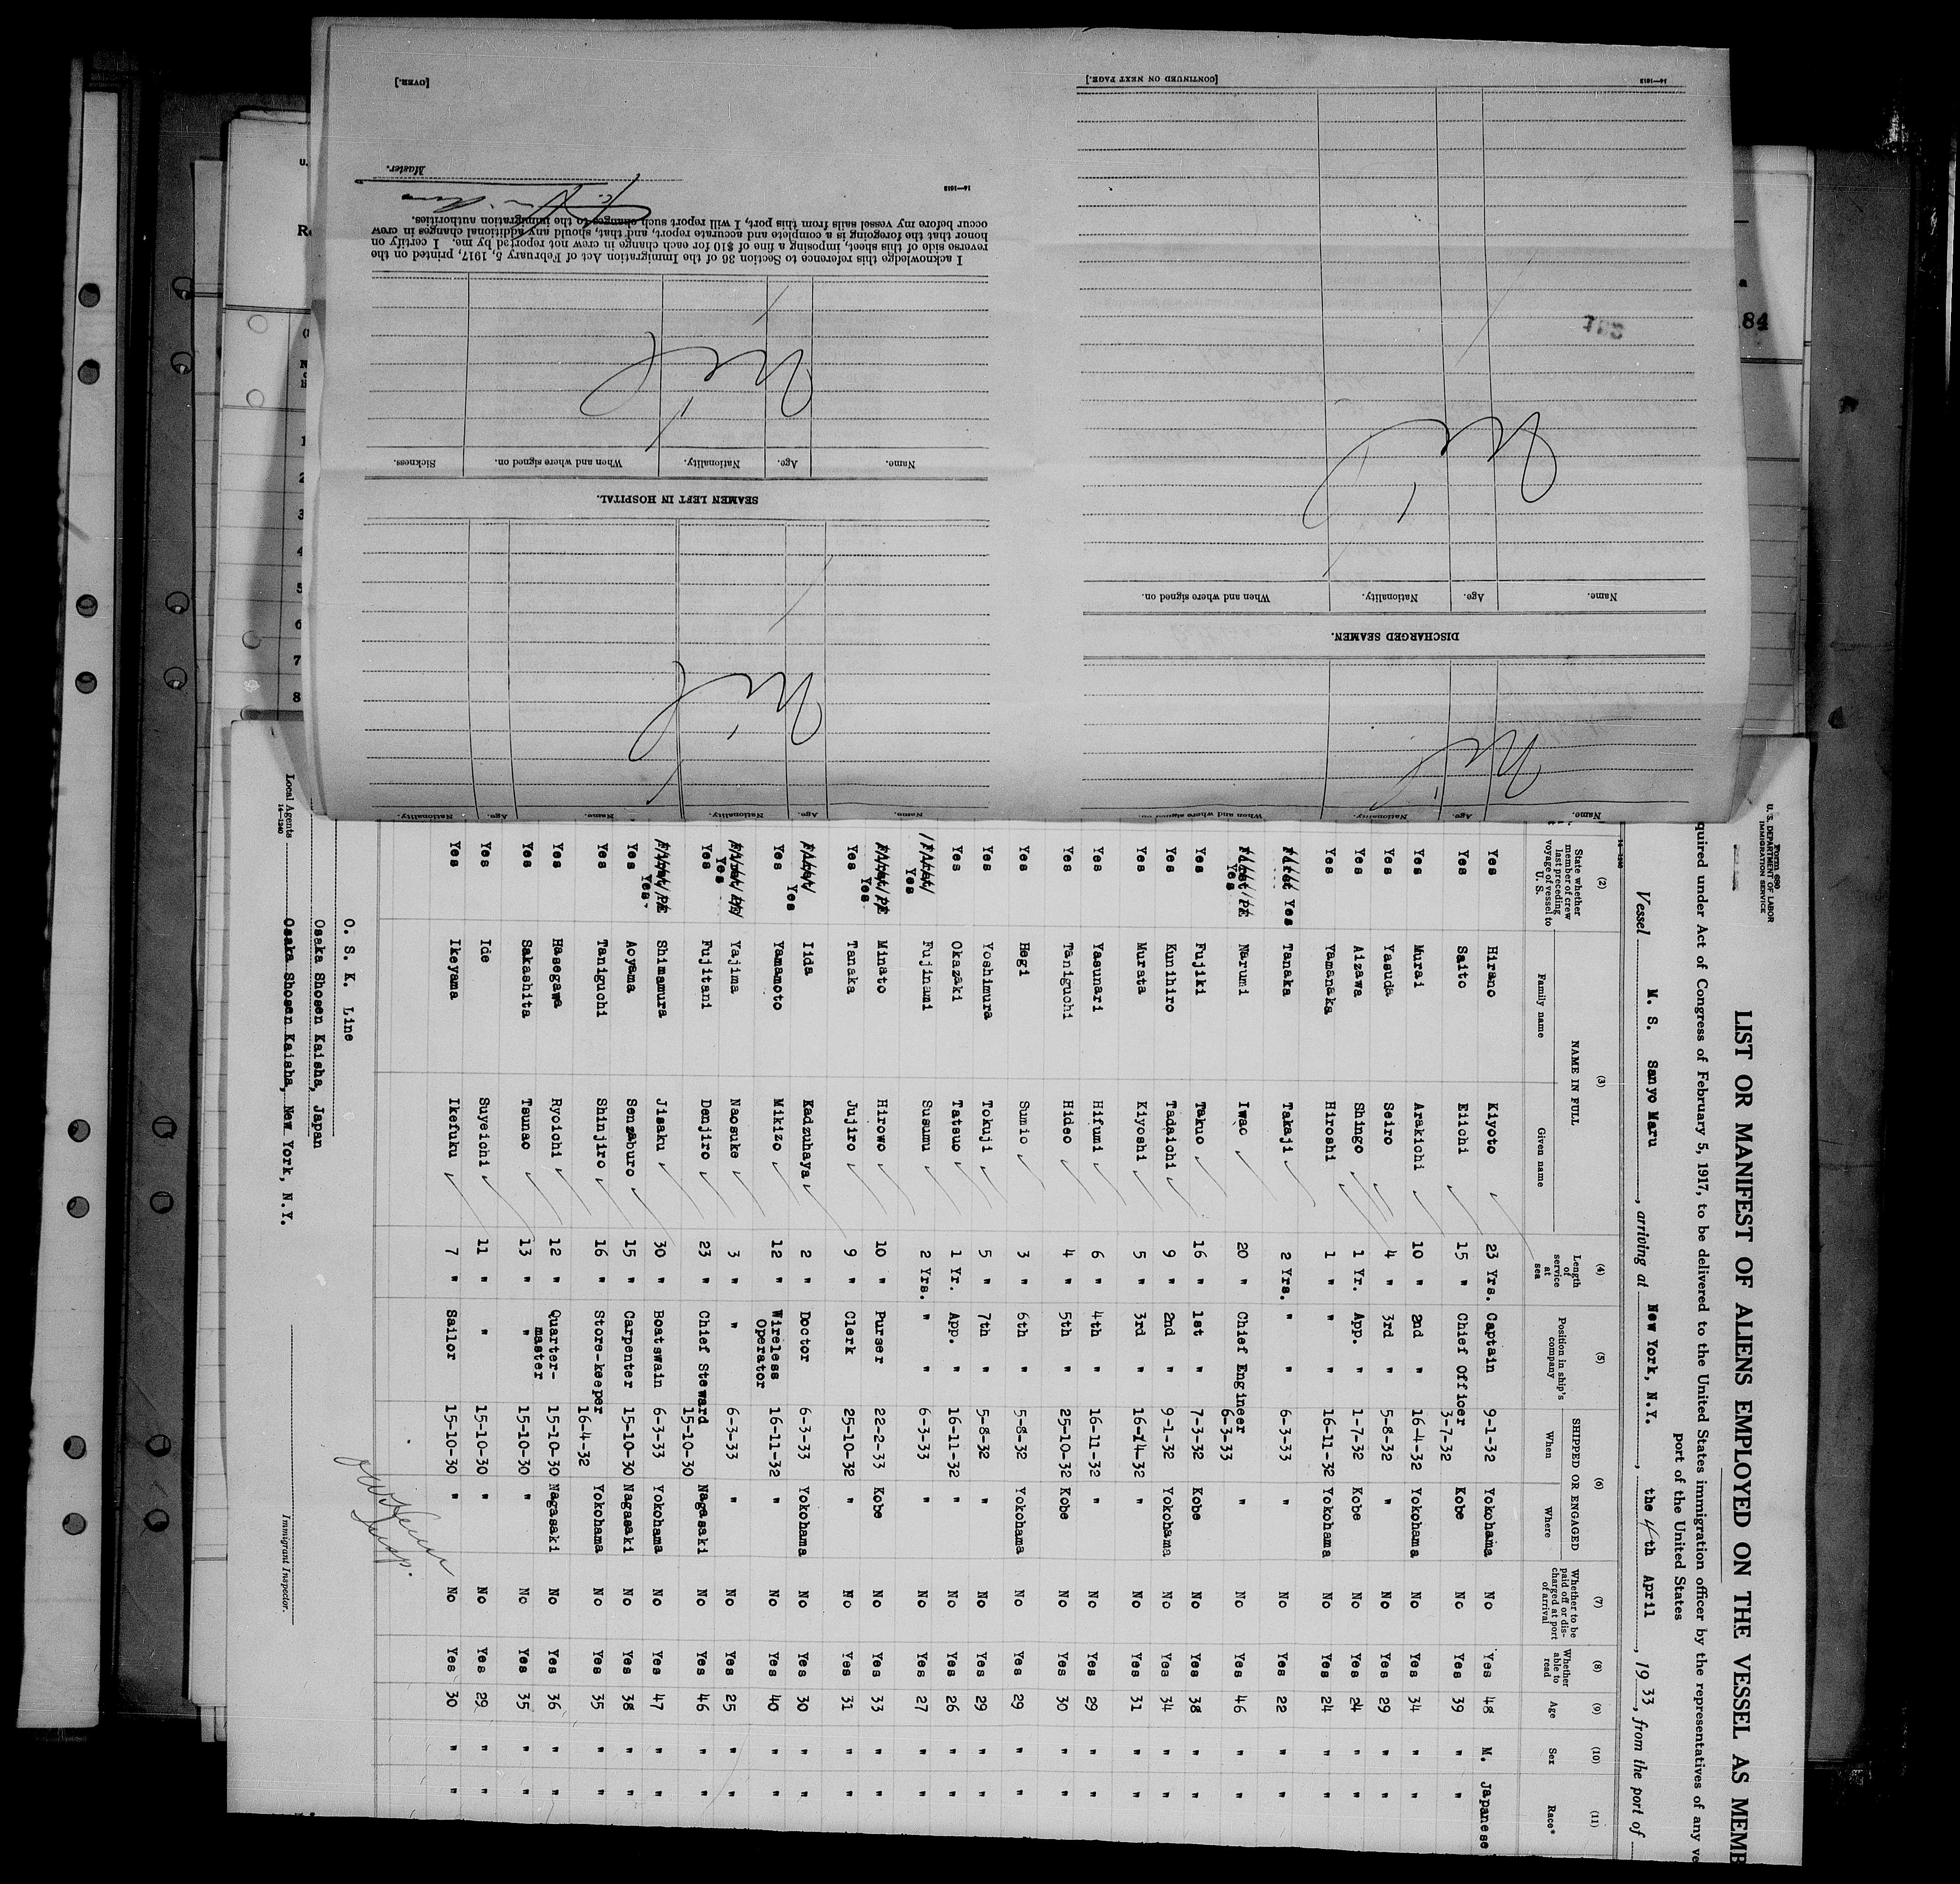 [CONTINUED ON NEXT PAGE.]
14—1613
Name. Age. Nationality. When and where signed on.
Nil
DISCHARGED SEAMEN.
Name. Age. Nationality. When and where signed on.
Nil
[OVER.]
Master.
14—1613
I acknowledge this reference to Section 36 of the Immigration Act of February 5, 1917, printed on the
reverse side of this sheet, imposing a fine of $10 for each change in crew not reported by me. I certify on
honor that the foregoing is a complete and accurate report, and that, should any additional changes in crew
occur before my vessel sails from this port, I will report such changes to the immigration authorities.
Nil
SEAMEN LEFT IN HOSPITAL.
Name. Age. Nationality. When and where signed on. Sickness.
Nil
Name. Age. Nationality. Name. Age. Nationality.
84
1
2
3
4
5
6
7
8
Form 680
U. S. DEPARTMENT OF LABOR
IMMIGRATION SERVICE
LIST OR MANIFEST OF ALIENS EMPLOYED ON THE VESSEL AS MEMB
quired under Act of Congress of February 5, 1917, to be delivered to the United States immigration officer by the representatives of any ve
port of the United States
Vessel M. S. Sanyo Maru, arriving at New York, N.Y., the 4th April, 1933, from the port of
14—1240
(2) (3) (4) (5) (6) (7) (8) (9) (10) (11)
State whether member of crew last preceding voyage of vessel to U. S.
NAME IN FULL
Family name Given name
Length of service at sea
Position in ship's company
SHIPPED OR ENGAGED
When Where
Whether to be paid off or discharged at port of arrival
Whether able to read
Age Sex Race*
Yes Hirano Kiyoto 23 Yrs. Captain 9-1-32 Yokohama No Yes 48 M. Japanese
Yes Saito Eiichi 15 " Chief Officer 3-7-32 Kobe No Yes 39 " "
Yes Murai Arakichi 10 " 2nd " 16-4-32 Yokohama No Yes 34 " "
Yes Yasuda Seiro 4 " 3rd " 5-8-32 " No Yes 29 " "
Yes Aizawa Shingo 1 Yr. App. " 1-7-32 Kobe No Yes 24 " "
Yes Yamanaka Hiroshi 1 " " " 16-11-32 Yokohama No Yes 24 " "
First Yes Tanaka Takaji 2 Yrs. " " 6-3-33 " No Yes 22 " "
First Yes Narumi Iwao 20 " Chief Engineer 6-3-33 " No Yes 46 " "
Yes Fujiki Takuo 16 " 1st " 7-3-32 Kobe No Yes 38 " "
Yes Kunihiro Tadaichi 9 " 2nd " 9-1-32 Yokohama No Yes 34 " "
Yes Murata Kiyoshi 5 " 3rd " 16-4-32 " No Yes 31 " "
Yes Yasunari Hifumi 6 " 4th " 16-11-32 " No Yes 29 " "
Yes Taniguchi Hideo 4 " 5th " 25-10-32 Kobe No Yes 30 " "
Yes Hegi Sumio 3 " 6th " 5-8-32 Yokohama No Yes 29 " "
Yes Yoshimura Tokuji 5 " 7th " 5-8-32 No Yes 29 " "
Yes Okazaki Tatsuo 1 Yr. App. " 16-11-32 " No Yes 26 " "
First Yes Fujinami Susumu 2 Yrs. " " 6-3-33 " No Yes 27 " "
First Yes Minato Hirowo 10 " Purser 22-2-33 Kobe No Yes 33 " "
Yes Tanaka Jujiro 9 " Clerk 25-10-32 " No Yes 31 " "
First Yes Iida Kadzuhaya 2 " Doctor 6-3-33 Yokohama No Yes 30 " "
Yes Yamamoto Mikizo 12 " Wireless Operator 16-11-32 " No Yes 40 " "
First Yes Yajima Naosuke 3 " " 6-3-33 " No Yes 25 " "
Yes Fujitani Denjiro 23 " Chief Steward 15-10-30 Nagasaki No Yes 46 " "
First Yes Shimamura Jisaku 30 " Boatswain 6-3-33 Yokohama No Yes 47 " "
Yes Aoyama Senzaburo 15 " Carpenter 15-10-30 Nagasaki No Yes 38 " "
Yes Taniguchi Shinjiro 16 " Store-keeper 16-4-32 Yokohama No Yes 35 " "
Yes Hasegawa Ryoichi 12 " Quarter-master 15-10-30 Nagasaki No Yes 36 " "
Yes Sakashita Tsunao 13 " " 15-10-30 " No Yes 35 " "
Yes Ide Suyeichi 11 " " 15-10-30 " No Yes 29 " "
Yes Ikeyama Ikefuku 7 " Sailor 15-10-30 " No Yes 30 " "
O. S. K. Line
Osaka Shosen Kaisha, Japan
Local Agents Osaka Shosen Kaisha, New York, N.Y.
14—1240
Immigrant Inspector.